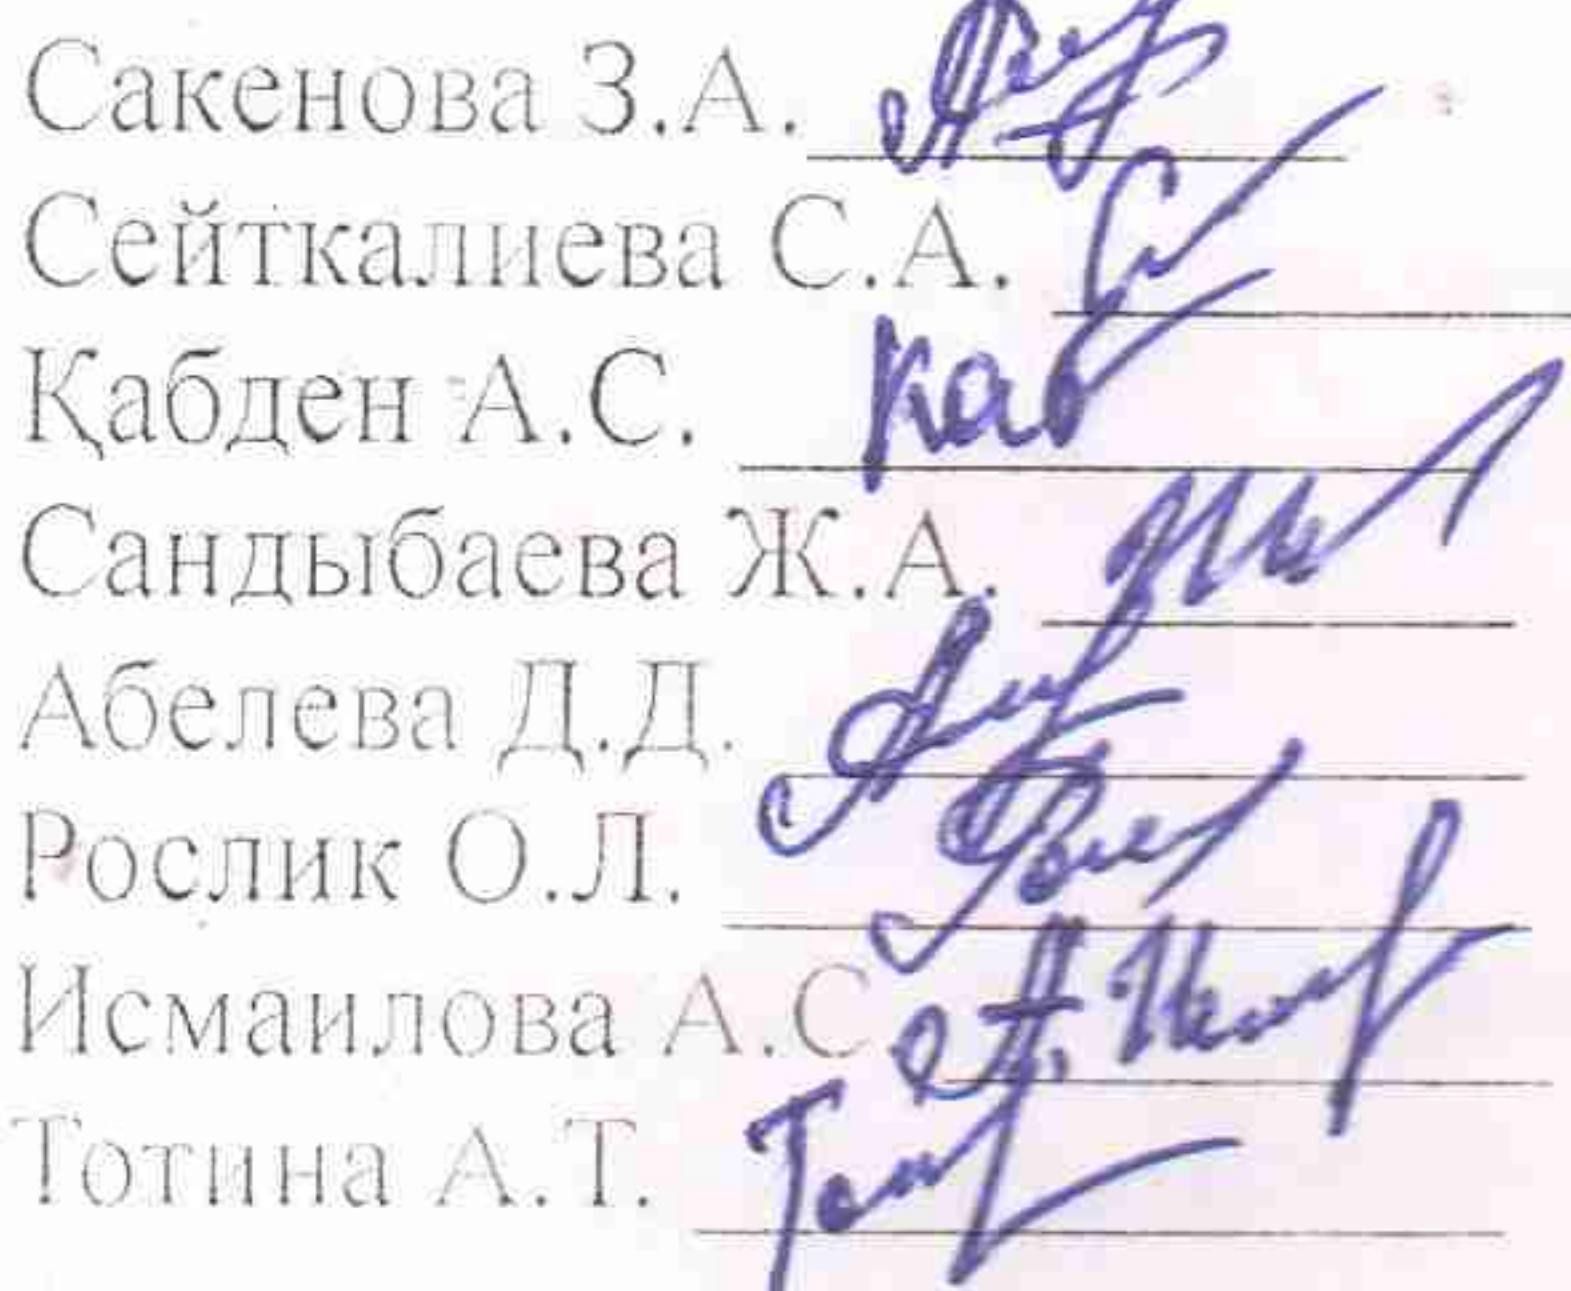 Сакенова З.А.
Сейткалиева С.А.
Қабден А.С. Каб
Сандыбаева Ж.А.
Абелева Д.Д.
Рослик О.Л.
Исмаилова А.С
Тотина А.Т.